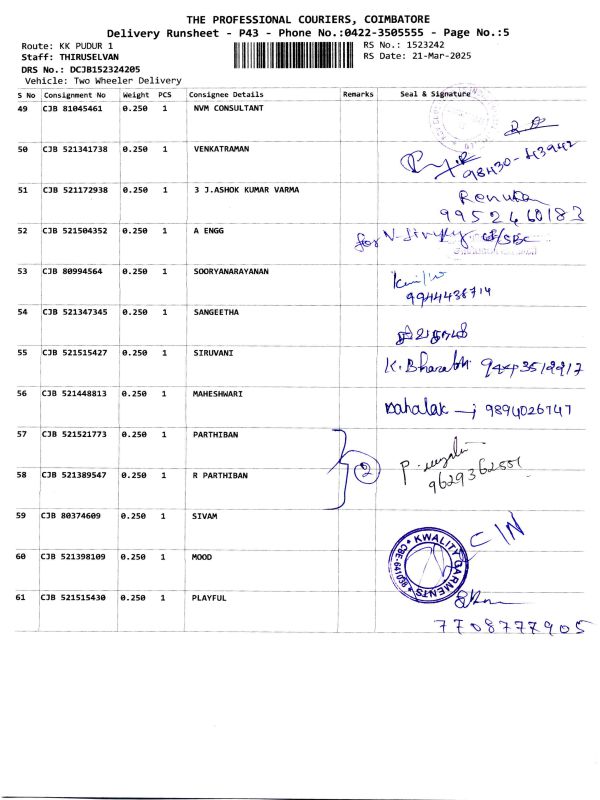 THE PROFESSIONAL COURIERS, COIMBATORE
Delivery Runsheet - P43 - Phone No.:0422-3505555 - Page No.:5
Route: KK PUDUR 1 RS No.: 1523242
Staff: THIRUSELVAN RS Date: 21-Mar-2025
DRS No.: DCJB152324205
Vehicle: Two Wheeler Delivery
S No Consignment No Weight PCS Consignee Details Remarks Seal & Signature
49 CJB 81045461 0.250 1 NVM CONSULTANT
50 CJB 521341738 0.250 1 VENKATRAMAN
98430-43942
51 CJB 521172938 0.250 1 3 J.ASHOK KUMAR VARMA Renuka
9952460183
52 CJB 521504352 0.250 1 A ENGG for
53 CJB 80994564 0.250 1 SOORYANARAYANAN
9944438714
54 CJB 521347345 0.250 1 SANGEETHA
55 CJB 521515427 0.250 1 SIRUVANI K. Bharath
56 CJB 521448813 0.250 1 MAHESHWARI
9894026747
57 CJB 521521773 0.250 1 PARTHIBAN
2 9629362557
58 CJB 521389547 0.250 1 R PARTHIBAN
59 CJB 80374609 0.250 1 SIVAM
60 CJB 521398109 0.250 1 MOOD KWALITY GARMENTS
61 CJB 521515430 0.250 1 PLAYFUL
7708777905